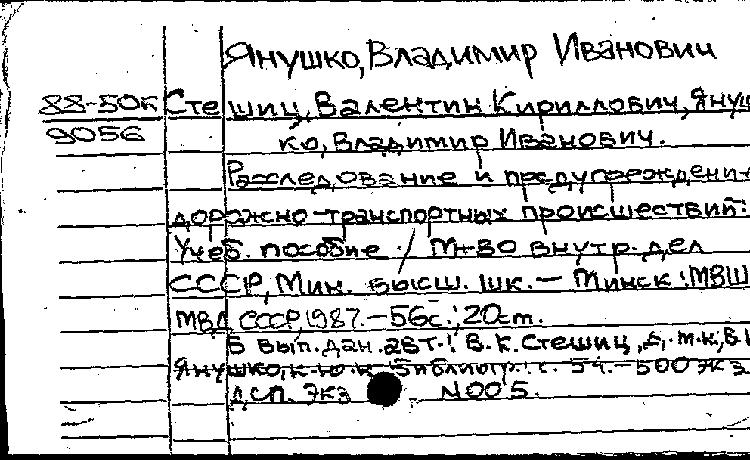 Янушко, Владимир Иванович
88-50к Стешиц, Валентин Кириллович, Януш
9056 ко, Владимир Иванович.
Расследование и предупреждени
дорожно-транспортных происшествий:
Учеб. пособие / М-во внутр. дел
СССР, Мин. высш. шк. – Минск: МВШ
МВД СССР, 1987. – 56с.; 20см.
В вып. дан. авт.: В.К. Стешиц, д. м.н., В.И
Янушко, к.ю.н. Библиогр.: с. 54. – 500 экз
ДСП. Экз N 005.